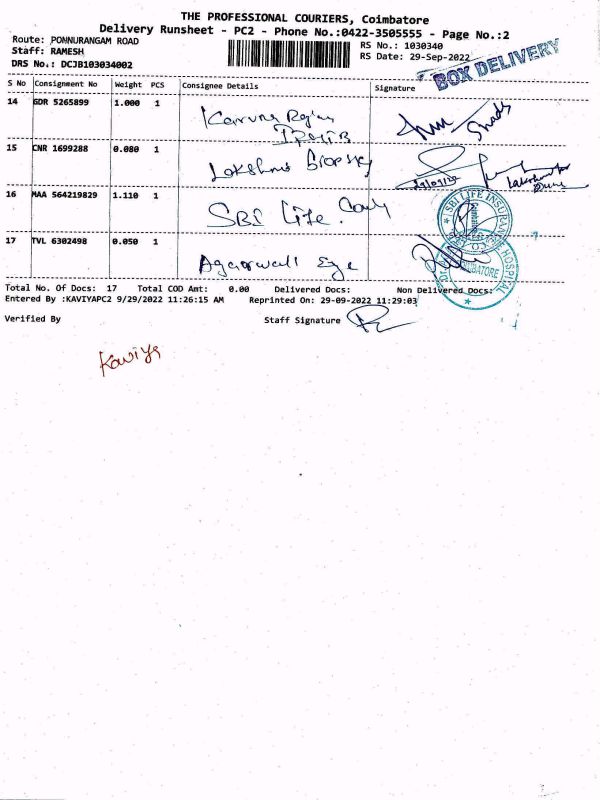 THE PROFESSIONAL COURIERS, Coimbatore
Delivery Runsheet - PC2 - Phone No.:0422-3505555 - Page No.:2
Route: PONNURANGAM ROAD
RS No.: 1030340
Staff: RAMESH
RS Date: 29-Sep-2022
DRS No.: DCJB103034002
BOX DELIVERY
S No Consignment No Weight PCS Consignee Details Signature
14 GDR 5265899 1.000 1
15 CNR 1699288 0.080 1 Lakshmi
16 MAA 564219829 1.110 1 SBI Life.
SBI LIFE INSURANCE
17 TVL 6302498 0.050 1 Agarwall Eye
HOSPITAL
COIMBATORE
Total No. Of Docs: 17 Total COD Amt: 0.00 Delivered Docs: Non Delivered Docs:
Entered By :KAVIYAPC2 9/29/2022 11:26:15 AM Reprinted On: 29-09-2022 11:29:03
Verified By Staff Signature
Kaviya